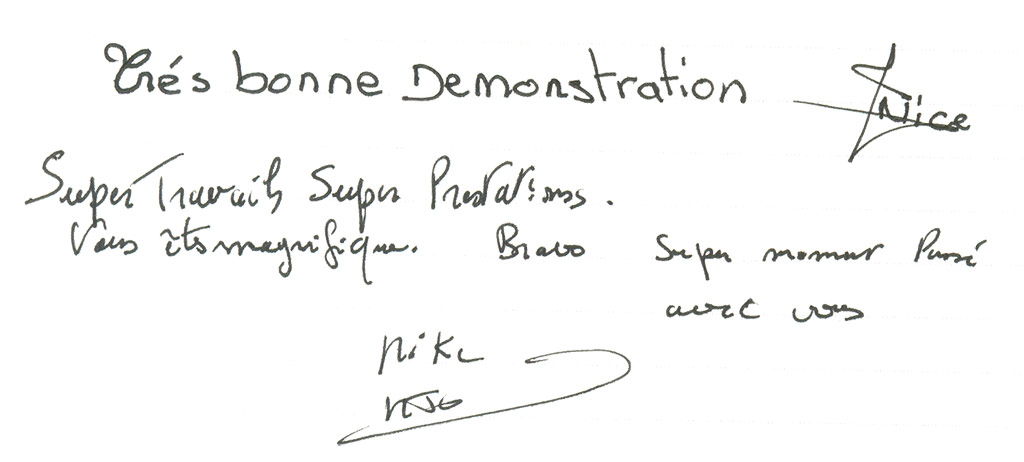 Trés bonne Demonstration
Nice
Super Travails Super Prestations.
Vous êts magnifique. Bravo Super moment Passé
avec vous
Mike